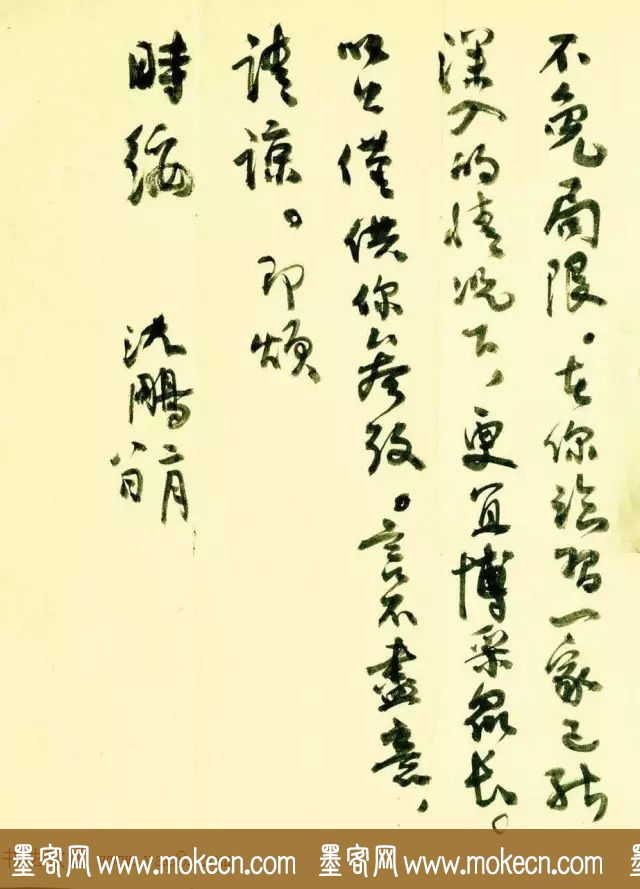 不免局限。在你临习一家已能
深入的情况下，更宜博采众长。
以上仅供你参考。言不尽意，
请谅。即颂
時绥
沈鹏 二月
八日
墨客网 www.mokecn.com 墨客网 www.mokecn.com 墨客网